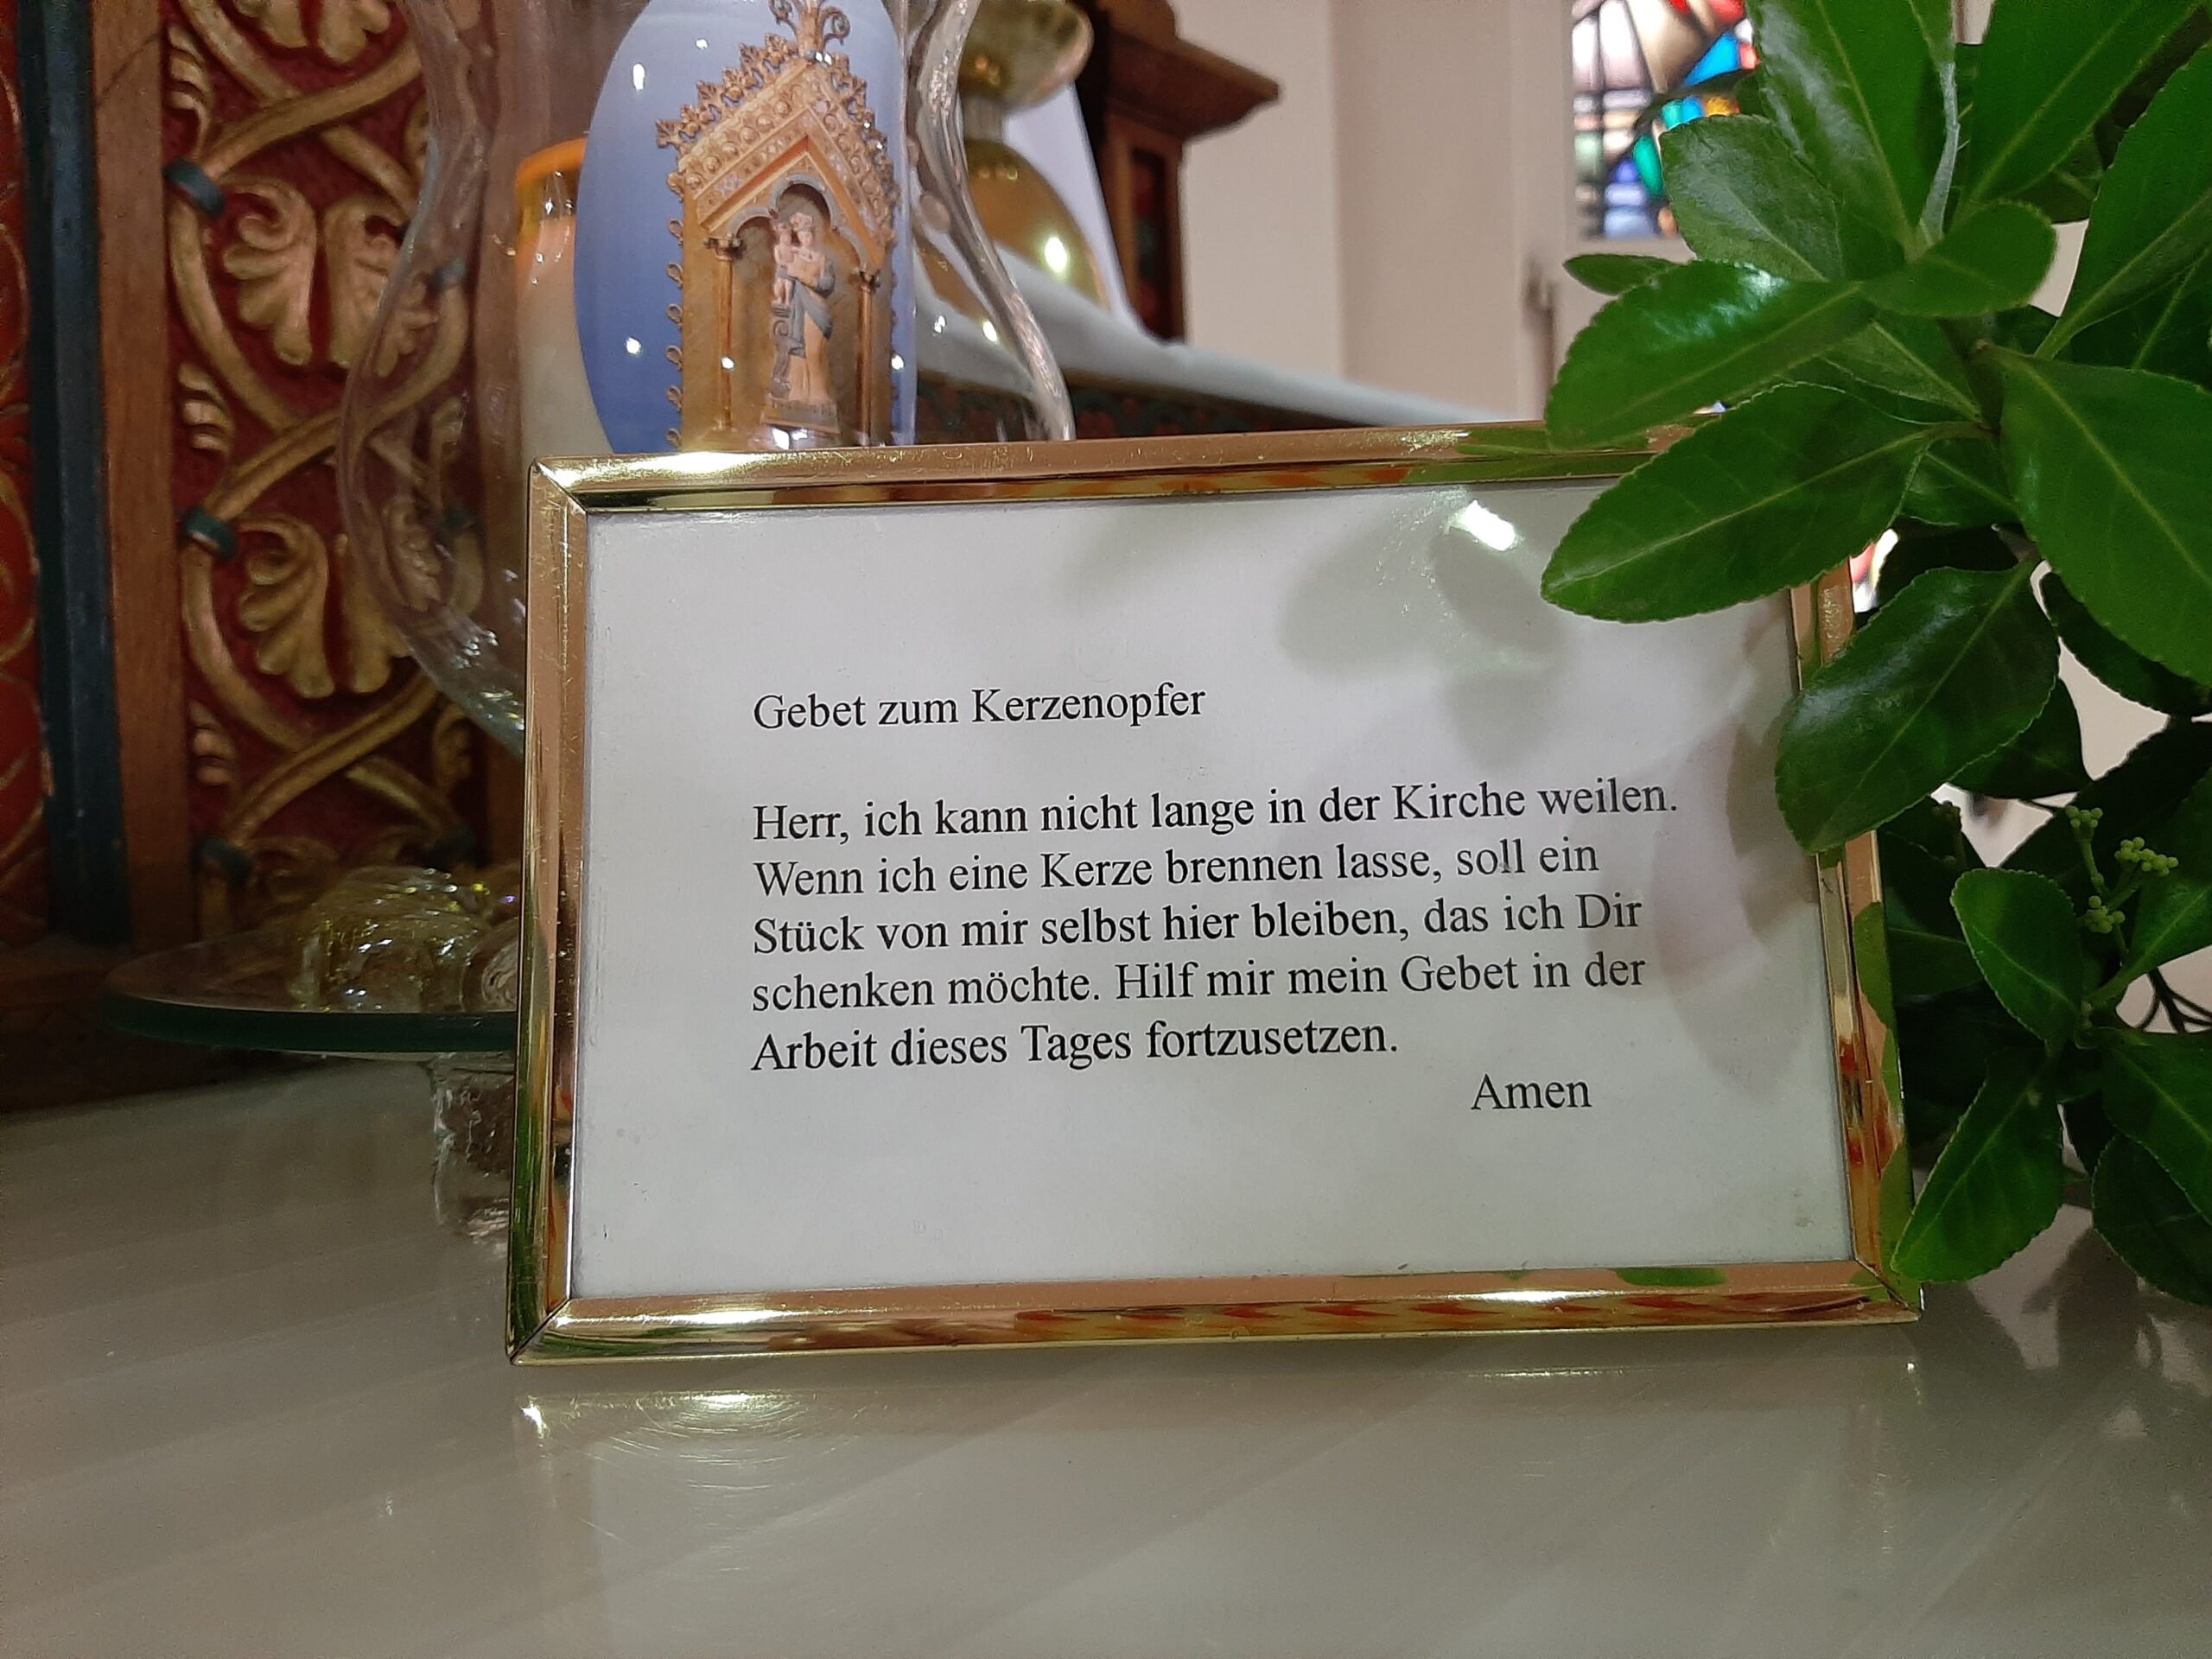 Gebet zum Kerzenopfer
Herr, ich kann nicht lange in der Kirche weilen.
Wenn ich eine Kerze brennen lasse, soll ein
Stück von mir selbst hier bleiben, das ich Dir
schenken möchte. Hilf mir mein Gebet in der
Arbeit dieses Tages fortzusetzen.
Amen